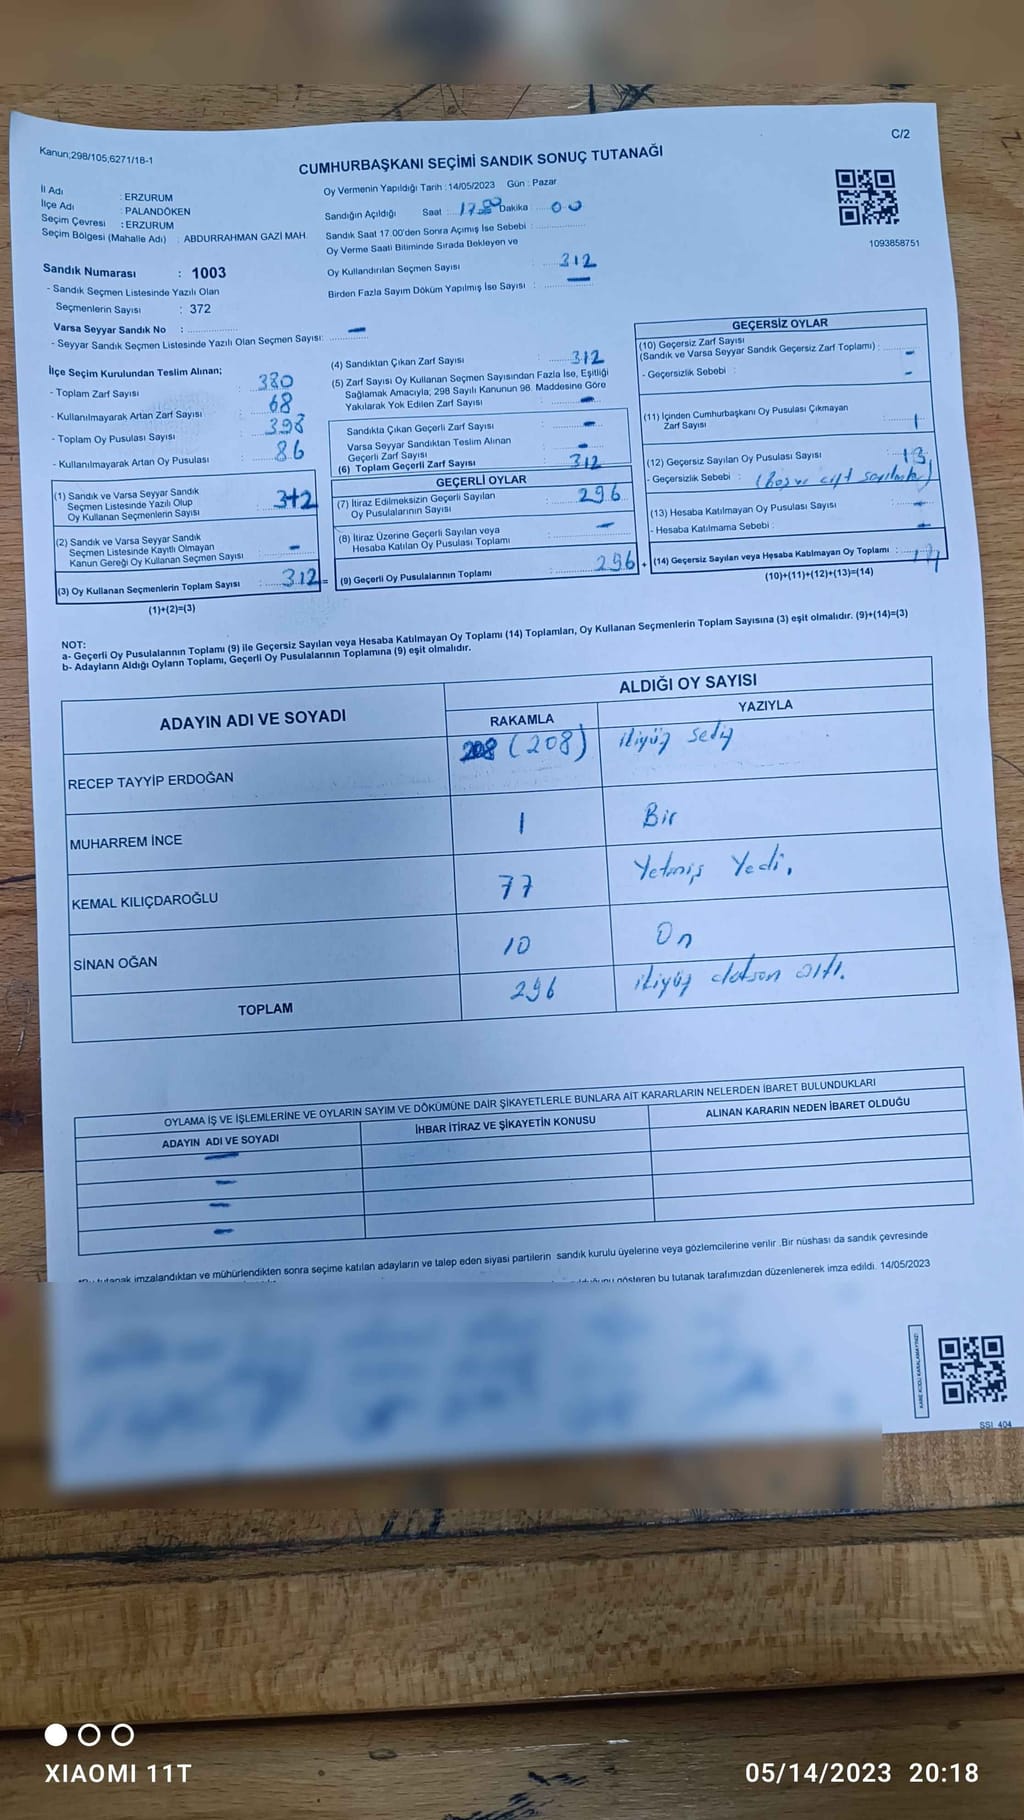 C/2
Kanun;298/105,6271/18-1
CUMHURBAŞKANI SEÇİMİ SANDIK SONUÇ TUTANAĞI
İl Adı : ERZURUM
İlçe Adı : PALANDÖKEN
Seçim Çevresi : ERZURUM
Seçim Bölgesi (Mahalle Adı) : ABDURRAHMAN GAZİ MAH.
Oy Vermenin Yapıldığı Tarih : 14/05/2023 Gün : Pazar
Sandığın Açıldığı Saat : 17.00 Dakika : 00
Sandık Saat 17.00'den Sonra Açımış İse Sebebi :
Oy Verme Saati Bitiminde Sırada Bekleyen ve
Oy Kullandırılan Seçmen Sayısı : 312
Birden Fazla Sayım Döküm Yapılmış İse Sayısı : —
1093858751
Sandık Numarası : 1003
- Sandık Seçmen Listesinde Yazılı Olan
Seçmenlerin Sayısı : 372
Varsa Seyyar Sandık No :
- Seyyar Sandık Seçmen Listesinde Yazılı Olan Seçmen Sayısı: —
İlçe Seçim Kurulundan Teslim Alınan;
- Toplam Zarf Sayısı : 380
- Kullanılmayarak Artan Zarf Sayısı : 68
- Toplam Oy Pusulası Sayısı : 398
- Kullanılmayarak Artan Oy Pusulası : 86
(1) Sandık ve Varsa Seyyar Sandık
Seçmen Listesinde Yazılı Olup
Oy Kullanan Seçmenlerin Sayısı : 312
(2) Sandık ve Varsa Seyyar Sandık
Seçmen Listesinde Kayıtlı Olmayan
Kanun Gereği Oy Kullanan Seçmen Sayısı : —
(3) Oy Kullanan Seçmenlerin Toplam Sayısı : 312 =
(1)+(2)=(3)
(4) Sandıktan Çıkan Zarf Sayısı : 312
(5) Zarf Sayısı Oy Kullanan Seçmen Sayısından Fazla İse, Eşitliği
Sağlamak Amacıyla; 298 Sayılı Kanunun 98. Maddesine Göre
Yakılarak Yok Edilen Zarf Sayısı : —
Sandıkta Çıkan Geçerli Zarf Sayısı : —
Varsa Seyyar Sandıktan Teslim Alınan
Geçerli Zarf Sayısı : —
(6) Toplam Geçerli Zarf Sayısı : 312
GEÇERLİ OYLAR
(7) İtiraz Edilmeksizin Geçerli Sayılan
Oy Pusulalarının Sayısı : 296
(8) İtiraz Üzerine Geçerli Sayılan veya
Hesaba Katılan Oy Pusulası Toplamı : —
(9) Geçerli Oy Pusulalarının Toplamı : 296 +
GEÇERSİZ OYLAR
(10) Geçersiz Zarf Sayısı
(Sandık ve Varsa Seyyar Sandık Geçersiz Zarf Toplamı) : —
- Geçersizlik Sebebi : —
(11) İçinden Cumhurbaşkanı Oy Pusulası Çıkmayan
Zarf Sayısı : 1
(12) Geçersiz Sayılan Oy Pusulası Sayısı :
- Geçersizlik Sebebi : (boş ve çift
(13) Hesaba Katılmayan Oy Pusulası Sayısı : —
- Hesaba Katılmama Sebebi : —
(14) Geçersiz Sayılan veya Hesaba Katılmayan Oy Toplamı :
(10)+(11)+(12)+(13)=(14)
NOT:
a- Geçerli Oy Pusulalarının Toplamı (9) ile Geçersiz Sayılan veya Hesaba Katılmayan Oy Toplamı (14) Toplamları, Oy Kullanan Seçmenlerin Toplam Sayısına (3) eşit olmalıdır. (9)+(14)=(3)
b- Adayların Aldığı Oyların Toplamı, Geçerli Oy Pusulalarının Toplamına (9) eşit olmalıdır.
ADAYIN ADI VE SOYADI ALDIĞI OY SAYISI
RAKAMLA YAZIYLA
RECEP TAYYİP ERDOĞAN 208 (208) ikiyüz sekiz
MUHARREM İNCE 1 Bir
KEMAL KILIÇDAROĞLU 77 Yetmiş Yedi.
SİNAN OĞAN 10 On
TOPLAM 296 ikiyüz doksan altı.
OYLAMA İŞ VE İŞLEMLERİNE VE OYLARIN SAYIM VE DÖKÜMÜNE DAİR ŞİKAYETLERLE BUNLARA AİT KARARLARIN NELERDEN İBARET BULUNDUKLARI
ADAYIN ADI VE SOYADI İHBAR İTİRAZ VE ŞİKAYETİN KONUSU ALINAN KARARIN NEDEN İBARET OLDUĞU
—
—
—
—
tutanak imzalandıktan ve mühürlendikten sonra seçime katılan adayların ve talep eden siyasi partilerin sandık kurulu üyelerine veya gözlemcilerine verilir .Bir nüshası da sandık çevresinde
gösteren bu tutanak tarafımızdan düzenlenerek imza edildi. 14/05/2023
KARE KODU KARALAMAYINIZ!
SSI_404
XIAOMI 11T
05/14/2023 20:18